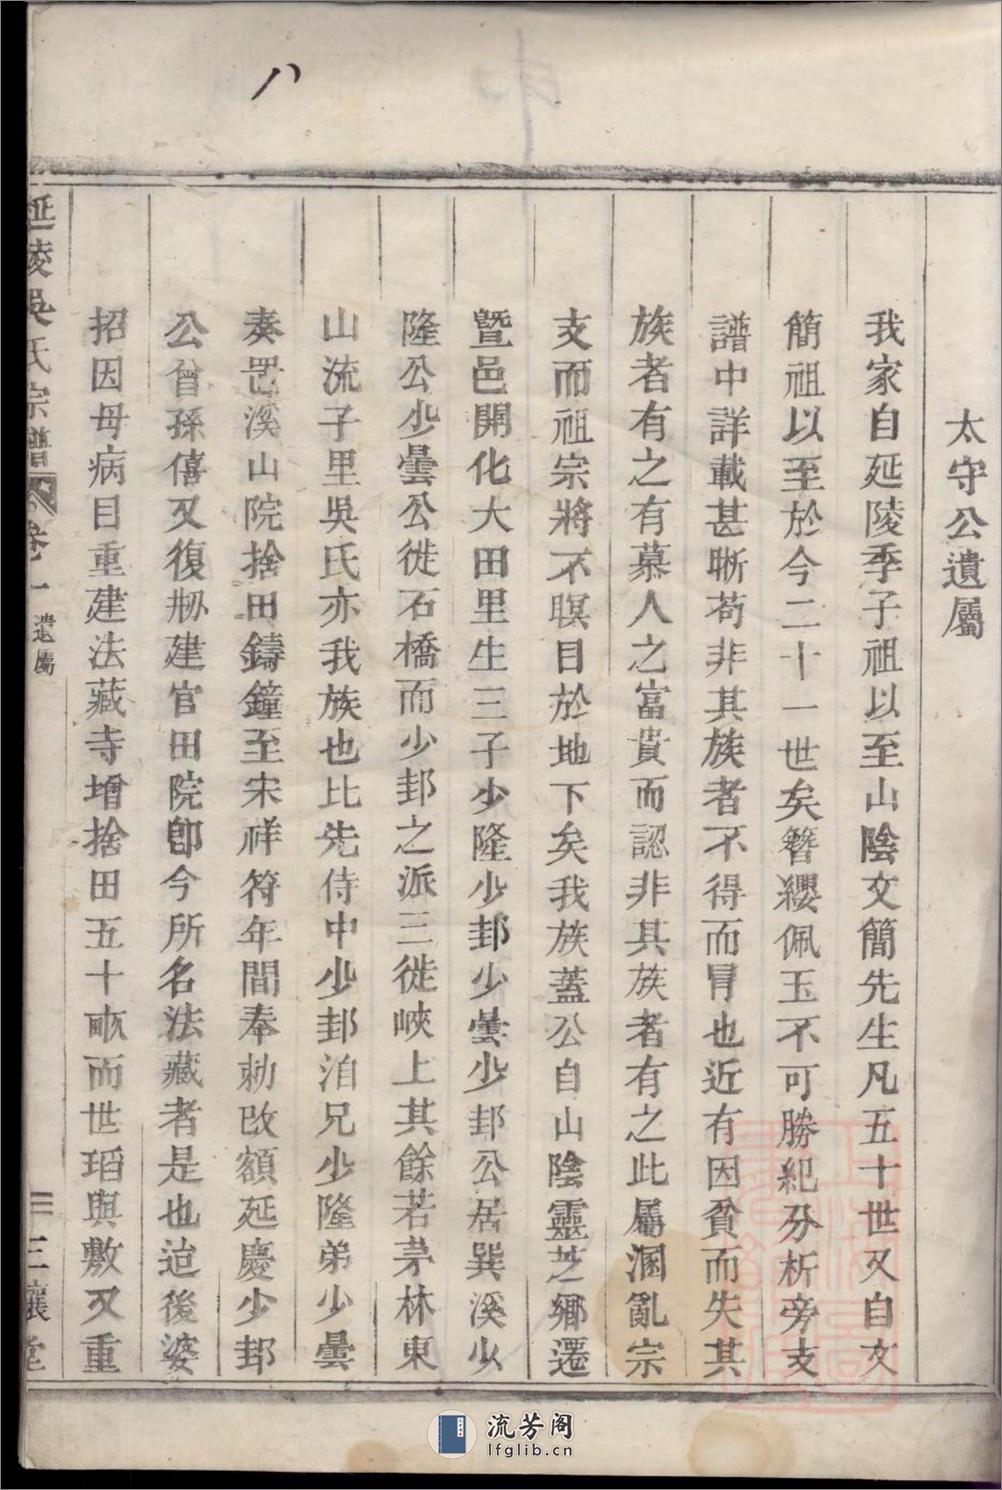 八
太守公遺屬
我家自延陵季子祖以至山陰文簡先生凡五十世又自文
簡祖以至於今二十一世矣簪纓佩玉不可勝紀分析旁支
譜中詳載甚晰苟非其族者不得而冐也近有因貧而失其
族者有之有慕人之富貴而認非其族者有之此屬溷亂宗
支而祖宗將不瞑目於地下矣我族蓋公自山陰靈芝鄉遷
暨邑開化大田里生三子少隆少邽少曇少邽公居巽溪少
隆公少曇公徙石橋而少邽之派三徙峽上其餘若茅林東
山流子里吳氏亦我族也比先侍中少邽洎兄少隆弟少曇
奏罢溪山院捨田鑄鐘至宋祥符年間奉勅改額延慶少邽
公曾孫僖又復剏建官田院卽今所名法藏者是也迨後婆
招因母病目重建法藏寺增捨田五十畝而世瑫與敷又重
延陵吳氏宗譜
卷一
遺屬
三
三讓堂
流芳阁
lfglib.cn